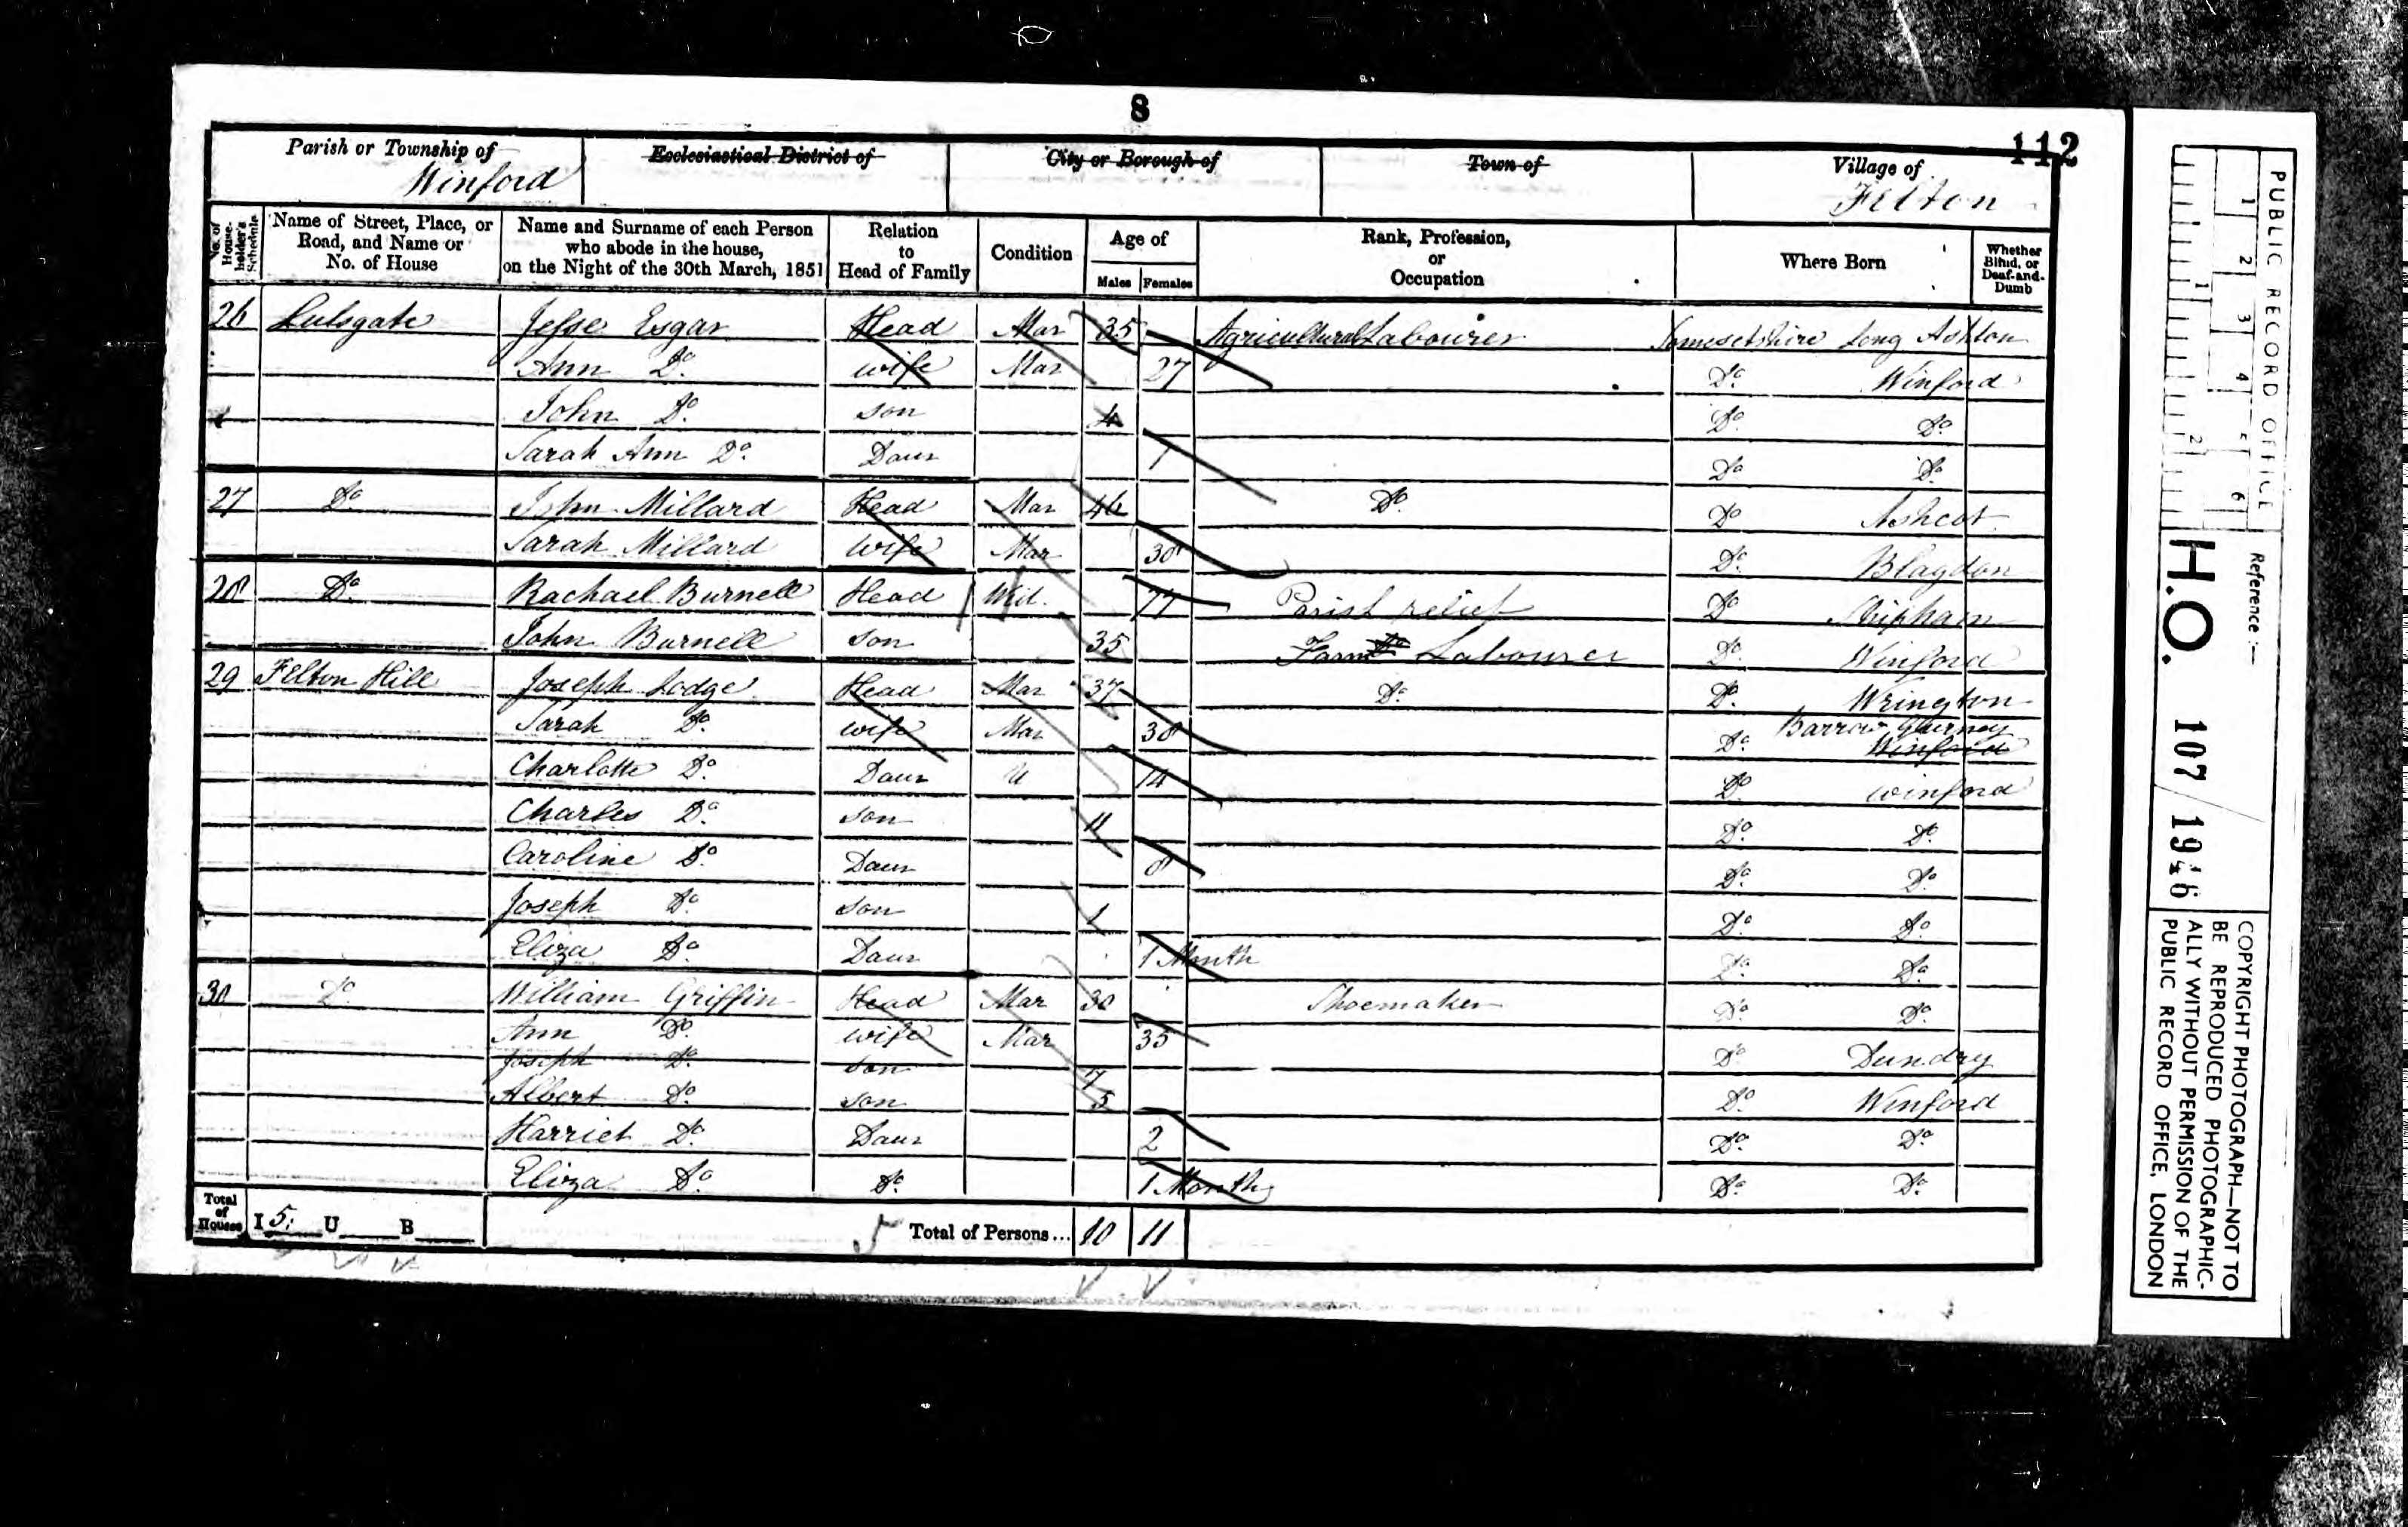 8
112
Parish or Township of
Winford
Ecclesiastical District of
City or Borough of
Town of
Village of
Felton
No. of House-holder's Schedule
Name of Street, Place, or Road, and Name or No. of House
Name and Surname of each Person who abode in the house, on the Night of the 30th March, 1851
Relation to Head of Family
Condition
Age of
Males Females
Rank, Profession, or Occupation
Where Born
Whether Blind, or Deaf-and-Dumb
26 Lulsgate Jesse Esgar Head Mar 35 Agricultural Labourer Somersetshire Long Ashton
Ann Do. wife Mar 27 Do. Winford
John Do. son 4 Do. Do.
Sarah Ann Do. Daur 1 Do. Do.
27 Do. John Millard Head Mar 46 Do. Do Ashcot
Sarah Millard wife Mar 38 Do. Blagdon
28 Do. Rachael Burnell Head Wid. 77 Parish relief Do. Shipham
John Burnell son 35 Farm Labourer Do. Winford
29 Felton Hill Joseph Lodge Head Mar 37 Do. Do. Wrington
Sarah Do. wife Mar 38 Do. Barrow Gurney Winford
Charlotte Do. Daur U 14 Do. Winford
Charles Do. son 11 Do. Do.
Caroline Do. Daur 8 Do. Do.
Joseph Do. son 1 Do. Do.
Eliza Do. Daur 1 Month Do. Do.
30 Do. William Griffin Head Mar 30 Shoemaker Do. Do.
Ann Do. wife Mar 35 Do. Dundry
Joseph Do. son 7
Albert Do. son 5 Do. Winford
Harriet Do. Daur 2 Do. Do.
Eliza Do. Do. 1 Month Do. Do.
Total of Houses I 5 U B
Total of Persons... 10 11
PUBLIC RECORD OFFICE
1 2 3 4 5 6
1 2
Reference:—
H.O. 107/1946
COPYRIGHT PHOTOGRAPH—NOT TO
BE REPRODUCED PHOTOGRAPHIC-
ALLY WITHOUT PERMISSION OF THE
PUBLIC RECORD OFFICE, LONDON